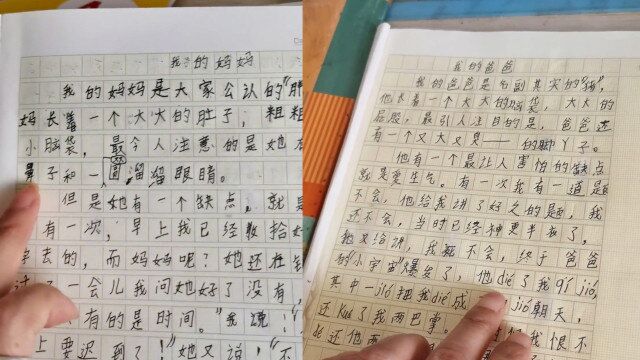 我的妈妈
我的妈妈是大家公认的"胖
妈长着一个大大的肚子,粗粗
小脑袋,最令人注意的是她
鼻子和一圆溜溜眼睛。
但是她有一个缺点,就是
有一次,早上我已经数拾好
去的,而妈妈呢?她还在
了一会儿我问她好了没有,
有的是时间。"我说:
上要迟到了!"她又说:"不
我的爸爸
我的爸爸是名副其实的"猪",
他长着一个大大的脑袋,大大的
屁股,最引人注目的是,爸爸还
有一个又大又臭——的脚丫子。
他有一个最让人害怕的缺点
就是爱生气。有一次我有一道题
不会,他给我讲了好久的题,我
还不会,当时已经神更半夜了,
他又给讲,我死不会,终于爸爸
的"小宇宙"爆发了,他dié了我qǐ jiǒ,
其中一jiǒ把我dié成 jiǒ朝天,
还kuā了我两巴掌。
还他两 我恨不